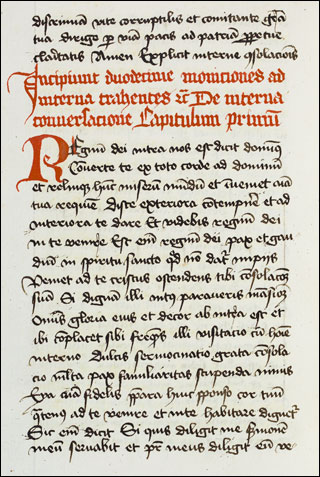 discriminū vite corruptilis et comitante gr̄a
tua dirigo ꝑ viā pacis ad patriā ꝑpetue
claritatis Amen Explicit interne ꝯsolacōis
Incipiunt duodecim moniciones ad
interna trahentes De interna
conversacione Capitulum primū
Regnū dei intra nos est dicit dominꝰ
Converte te ex toto corde ad dominū
et relinque hūc miserū mūdū et īveniet aīa
tua requiē Disce exteriora cōtempnē et ad
interiora te dare Et videbis regnū dei
in te venire Est enī regnū dei pax et gau
diū in spiritu sancto qđ nō datᷣ impiis
Veniet ad te cristus ostendens tibi cōsolacōem
suā Si dignam illi intꝰ paraveris māsionē
Omīs gloria eius et decor ab intᷓa est et
ibi cōplacet sibi freqͣns illi visitacio cū hoīe
interno Dulcis sermocinatio grata cōsola
cio mĺta pax familiaritas stupenda nimis
Eya aīa fidelis ꝑpara huic sponso cor tuū
qͣtenꝰ ad te venire et in te habitare dignetᷣ
Sic enī dicit Si quis diligit me sermonē
meū servabit et pr̄ meus diligit eū ve-